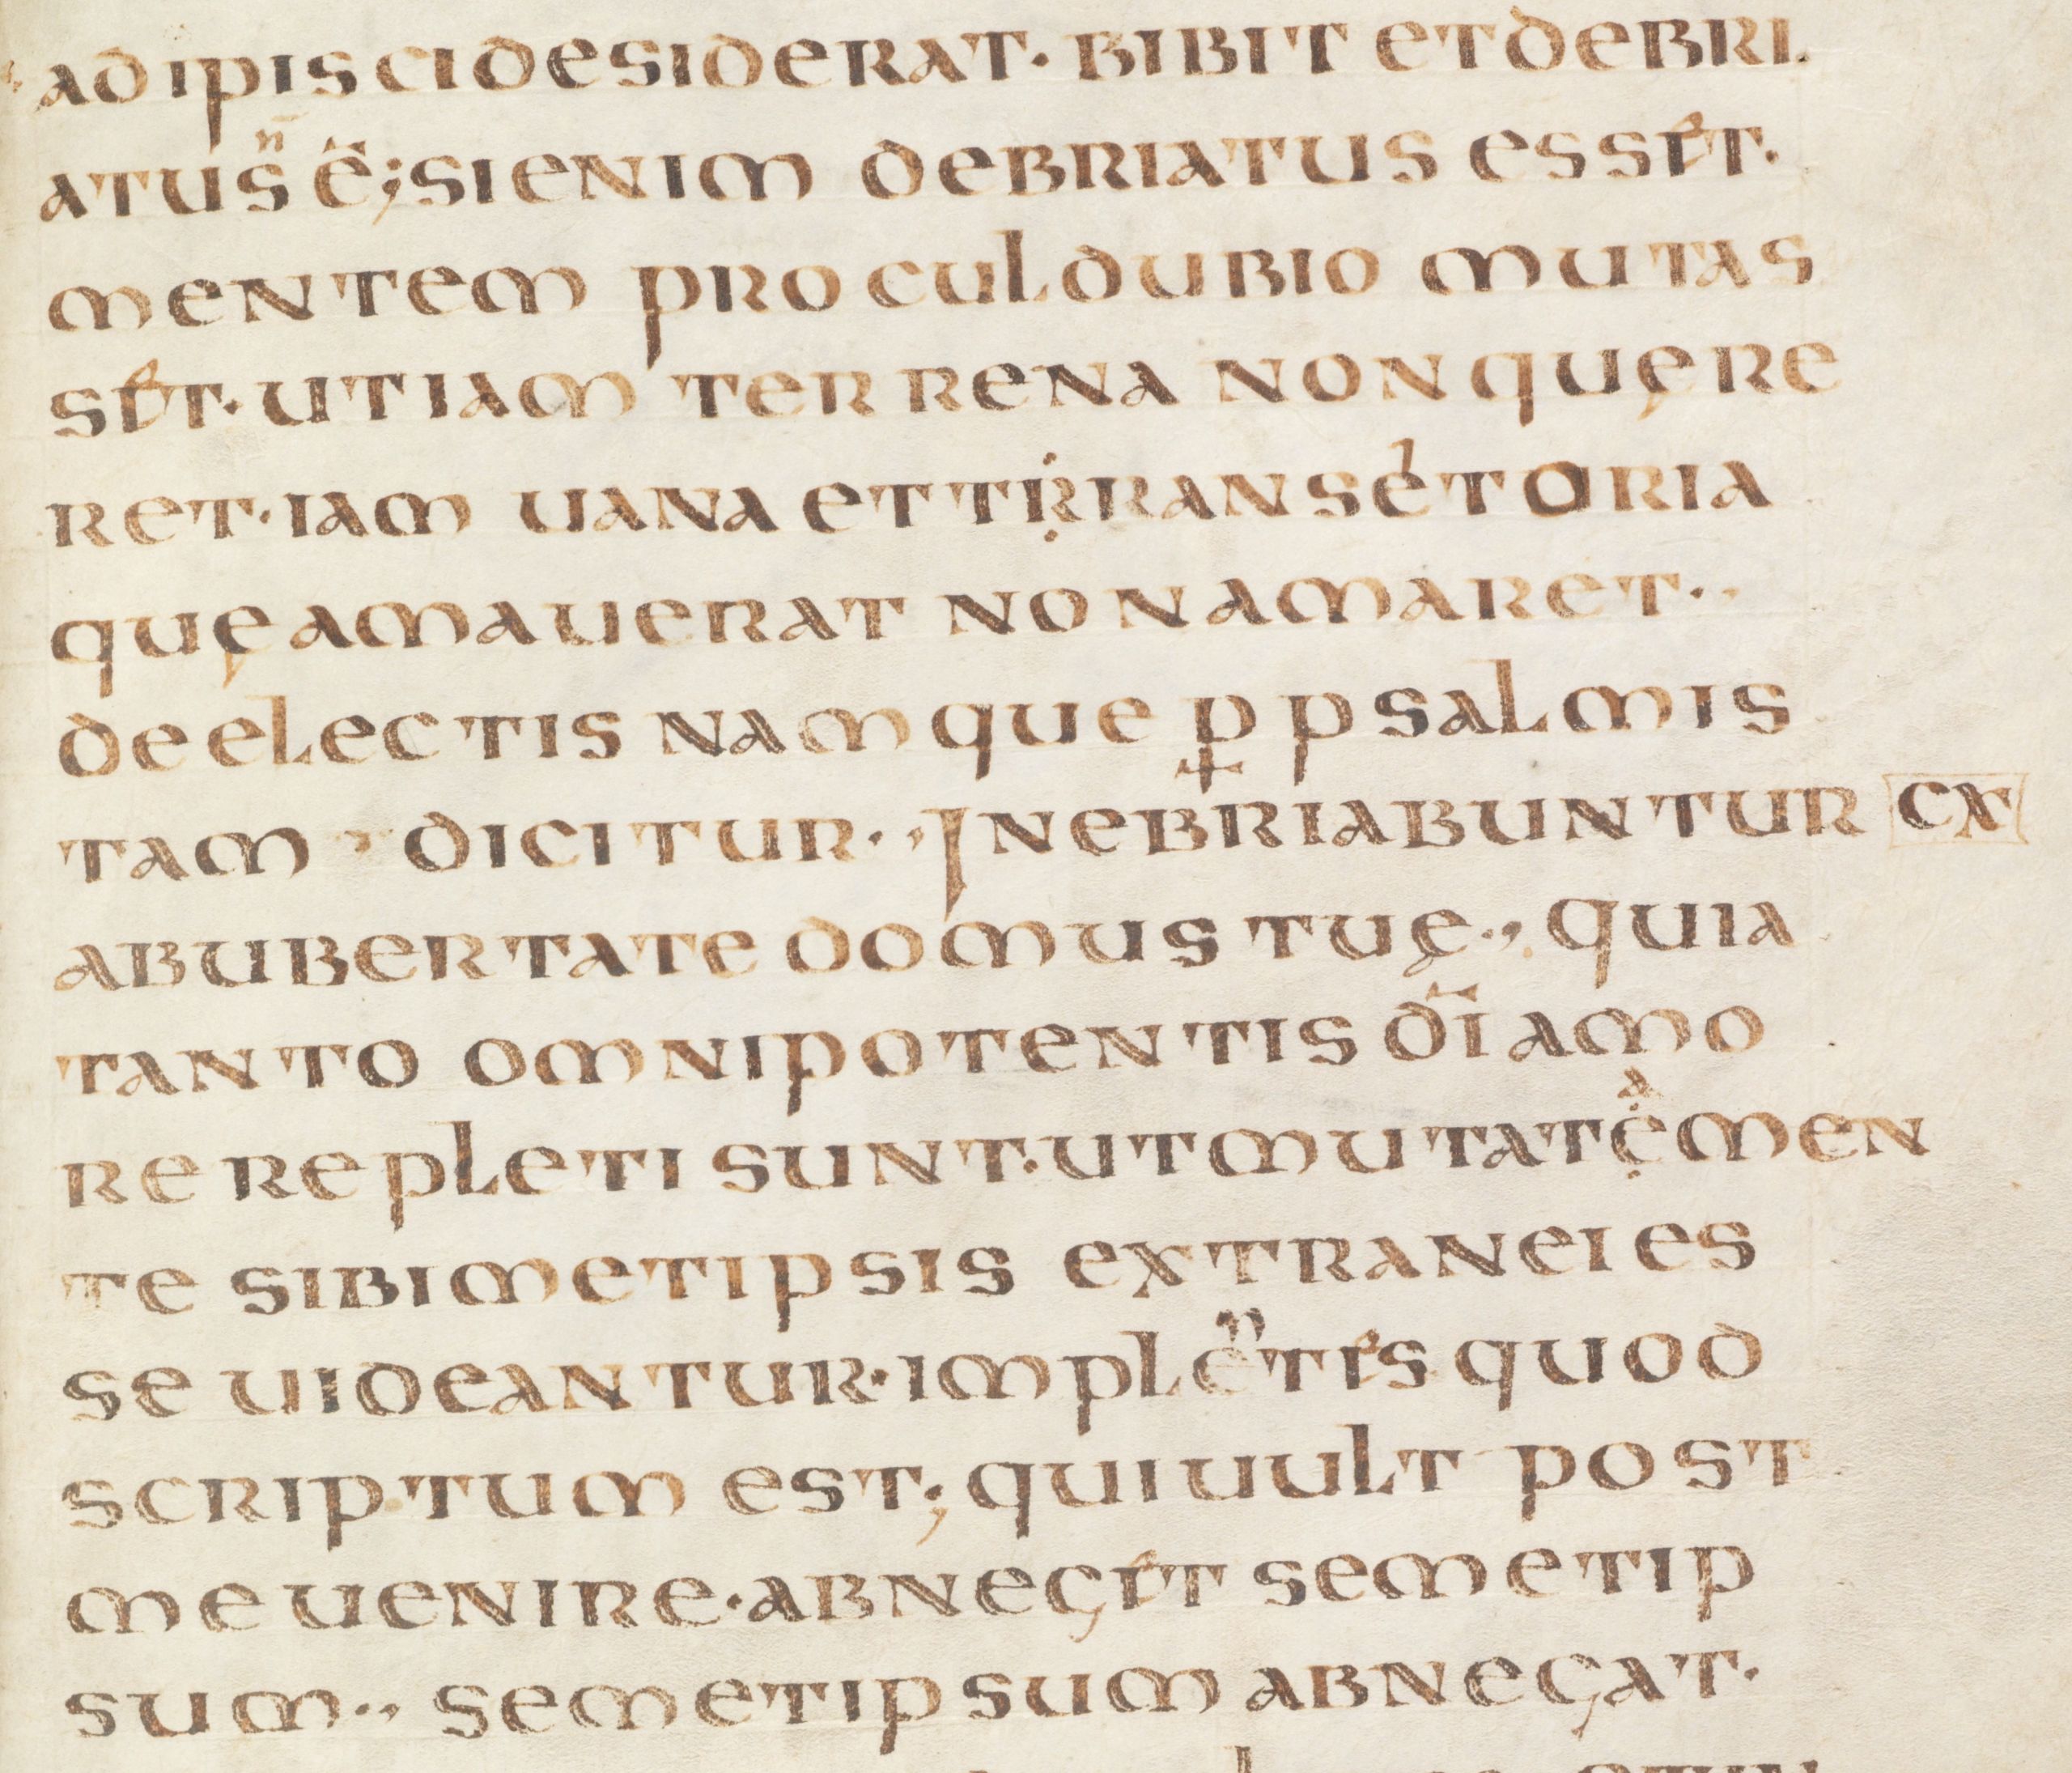 adipisci desiderat· bibit et debri
atus n̄ ē; si enim debriatus essēt·
mentem procul dubio mutas
set· ut iam terrena non quęre
ret· iam uana et trransitoria
quę amauerat non amaret·
de electis namque ꝑ psalmis
tam dicitur·, Inebriabuntur
ab ubertate domus tuę·, quia
tanto omnipotentis dī amo
re repleti sunt· ut mutata men
te sibimetipsis extranei es
se uideantur· implentes quod
scriptum est; qui uult post
me uenire· abneget semetip
sum·, semetipsum abnegat·